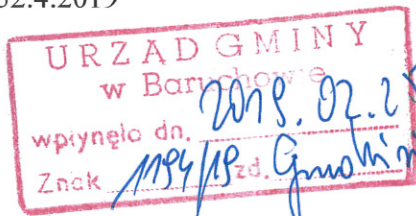 52.4.2019
URZĄD GMINY
w Baruchowie
wpłynęło dn. 2019. 02. 2
Znak 1194/19 zd.